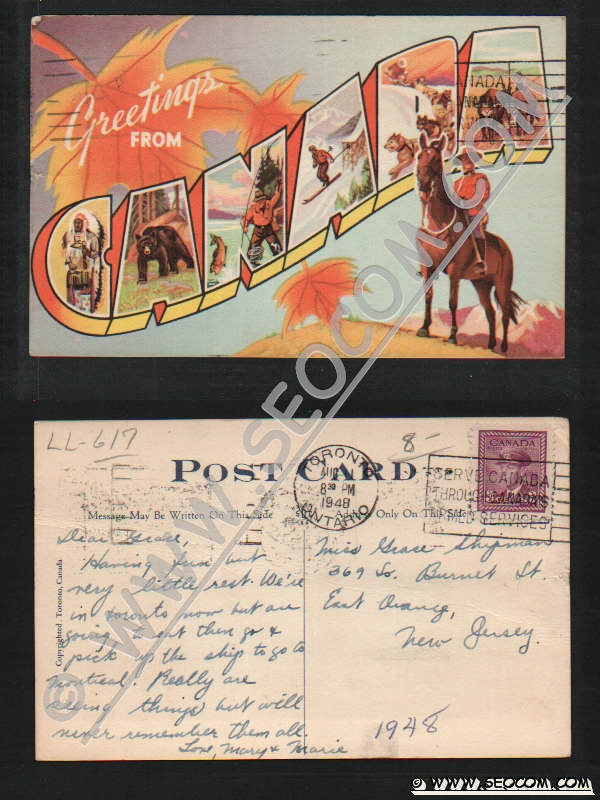 Greetings
FROM
CANADA
LL-617
8-
POST CARD
CANADA
TORONTO
AUG
8 30 PM
1948
ONTARIO
SERVE CANADA
THROUGH
MED SERVICES
Message May Be Written On This Side
Only On This Side
Copyrighted. Toronto, Canada
Dear Grace,
Having fun but
very little rest. We're
in Toronto now but are
going to eat then go &
pick up the ship to go to
Montreal. Really are
seeing things but will
never remember them all.
Love, Mary & Marie
Miss Grace Shipman
369 So. Burnet St.
East Orange,
New Jersey.
1948
© WWW.SEOCOM.COM
© WWW.SEOCOM.COM ©